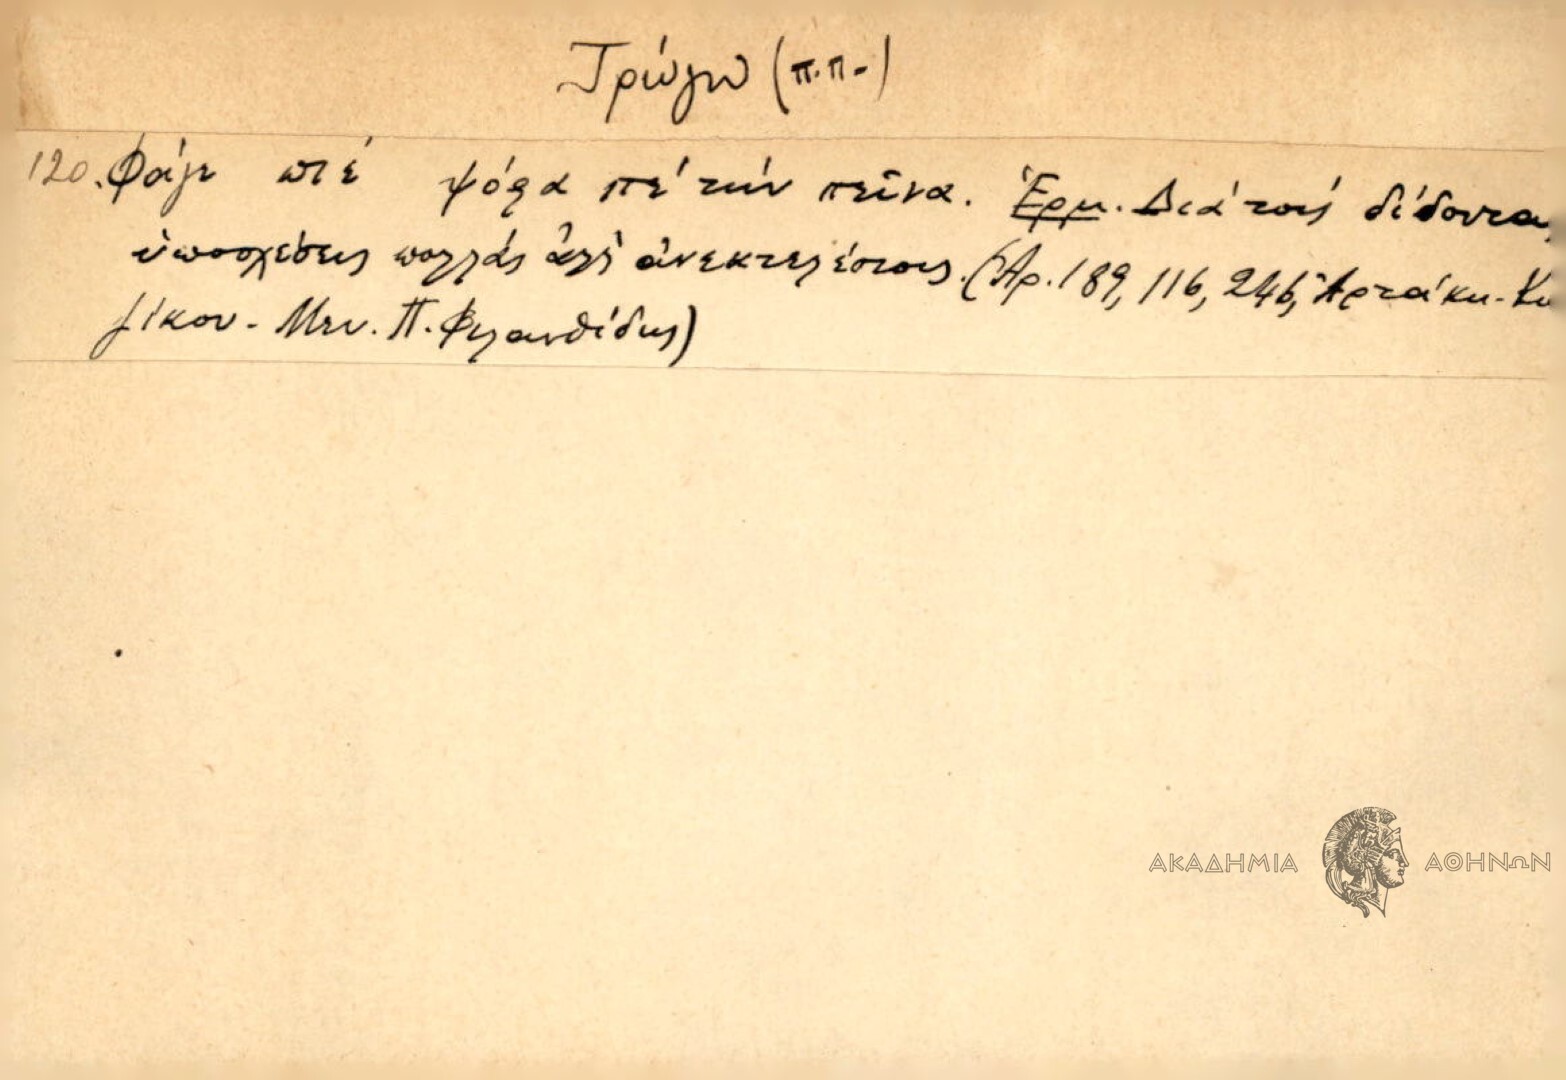 Τρώγω (π.π.)
120. Φάγε πιέ ψόφα πέ τήν πεῖνα. Ἑρμ. Διά τούς δίδοντας
ὑποσχέσεις πολλάς ἀλλ' ἀνεκτελέστους. (Ἀρ. 189, 116, 246, Ἀρτάκη - Κυ
ζίκου - Μεν. Π. Φιλανθίδης)
ΑΚΑΔΗΜΙΑ ΑΘΗΝΩΝ